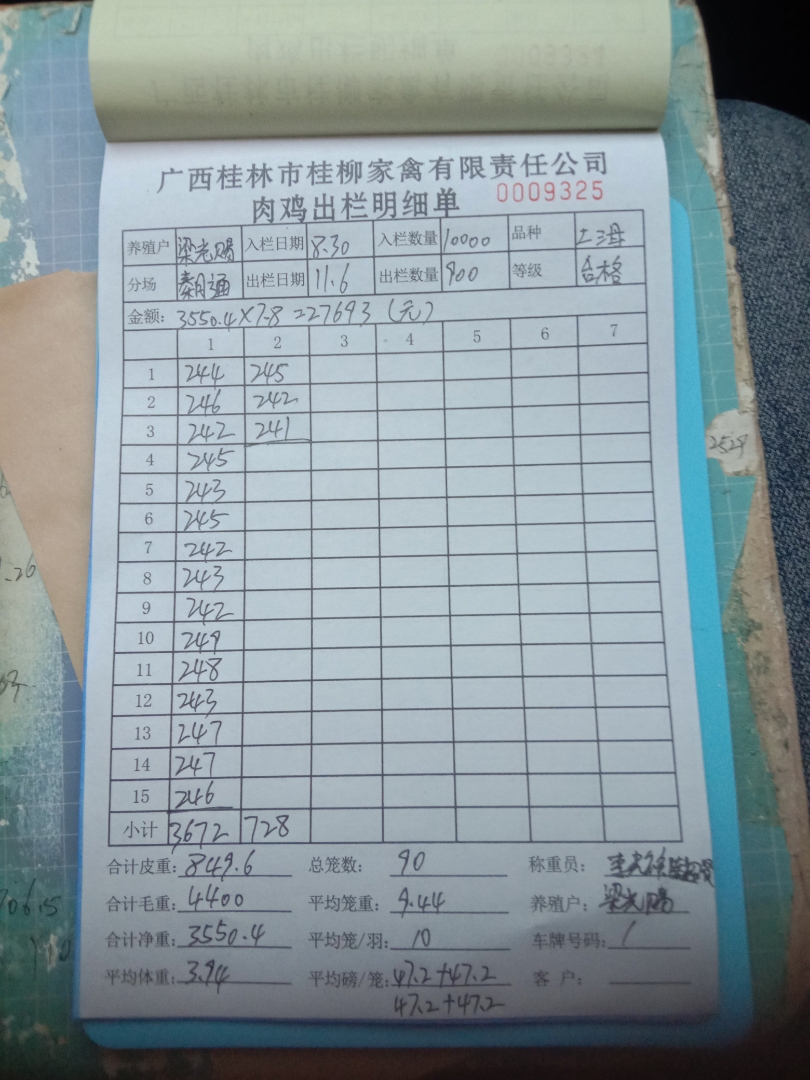 广西桂林市桂柳家禽有限责任公司
肉鸡出栏明细单 0009325
养殖户 梁光赐 入栏日期 8.30 入栏数量 10000 品种 土三母
分场 出栏日期 11.6 出栏数量 900 等级 合格
金额: 3550.4×7.8=27693(元)
1 2 3 4 5 6 7
1 244 245
2 246 242
3 242 241
4 245
5 243
6 245
7 242
8 243
9 242
10 249
11 248
12 243
13 247
14 247
15 246
小计 3672 728
合计皮重: 849.6 总笼数: 90 称重员:
合计毛重: 4400 平均笼重: 9.44 养殖户: 梁光赐
合计净重: 3550.4 平均笼/羽: 10 车牌号码: /
平均体重: 3.94 平均磅/笼: 47.2+47.2 客户:
47.2+47.2
2529